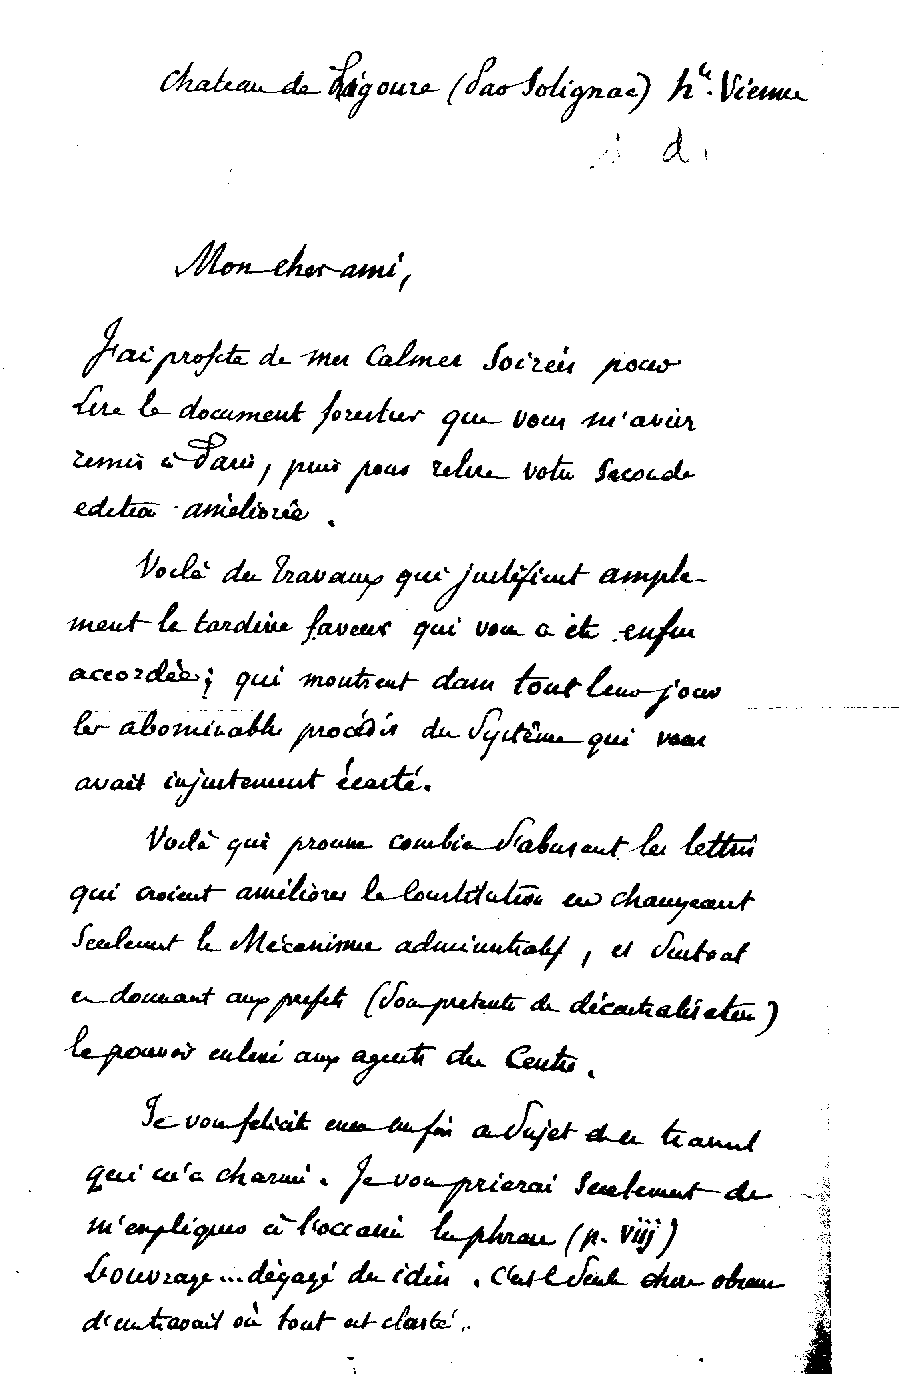 Chateau de Ligoure (par Solignac) hte. Vienne
s d.
Mon cher ami,
J'ai profité de mes calmes soirées pour
lire le document forestier que vous m'aviez
remis à Paris, puis pour relire votre seconde
edition améliorée.
Voilà des travaux qui justifient ample-
ment la tardive faveur qui vous a été enfin
accordée; qui montrent dans tout leur jour
les abominables procédés du système qui vous
avait injustement écarté.
Voilà qui prouve combien s'abusent les lettrés
qui croient améliorer la Constitution en changeant
seulement le Mécanisme administratif, et surtout
en donnant aux préfets (sous prétexte de décentralisation)
le pouvoir enlevé aux agents du Centre.
Je vous félicite encore enfin au sujet de ce travail
qui m'a charmé. Je vous prierai seulement de
m'expliquer à l'occasion la phrase (p. viij)
L'ouvrage... dégagé des idées. C'est la seule chose obscure
d'un travail où tout est clarté.